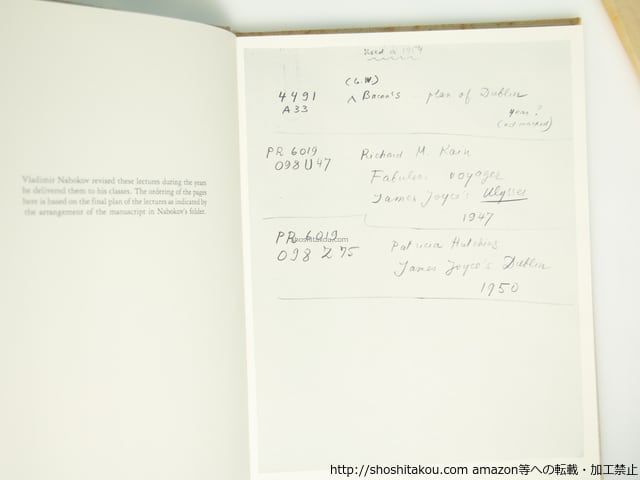 Vladimir Nabokov revised these lectures during the years
he delivered them to his classes. The ordering of the pages
here is based on the final plan of the lectures as indicated by
the arrangement of the manuscript in Nabokov's folder.
Used in 1954
4491
A33
(G.W.)
^ Bacon's plan of Dublin
year?
(not marked)
PR 6019
098 U47
Richard M. Kain
Fabulous voyager
James Joyce's Ulysses
1947
PR 6019
098 Z 75
shoshitakou.com
Patricia Hutchins
James Joyce's Dublin
1950
http://shoshitakou.com amazon等への転載・加工禁止